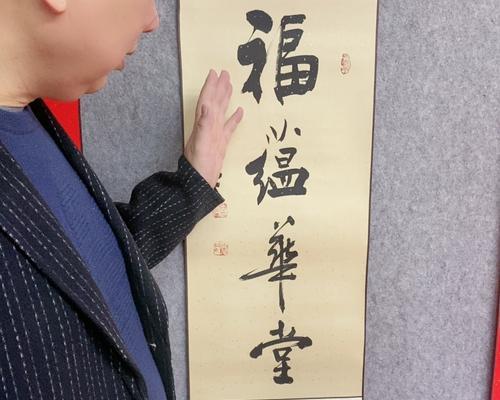 福蕴華堂